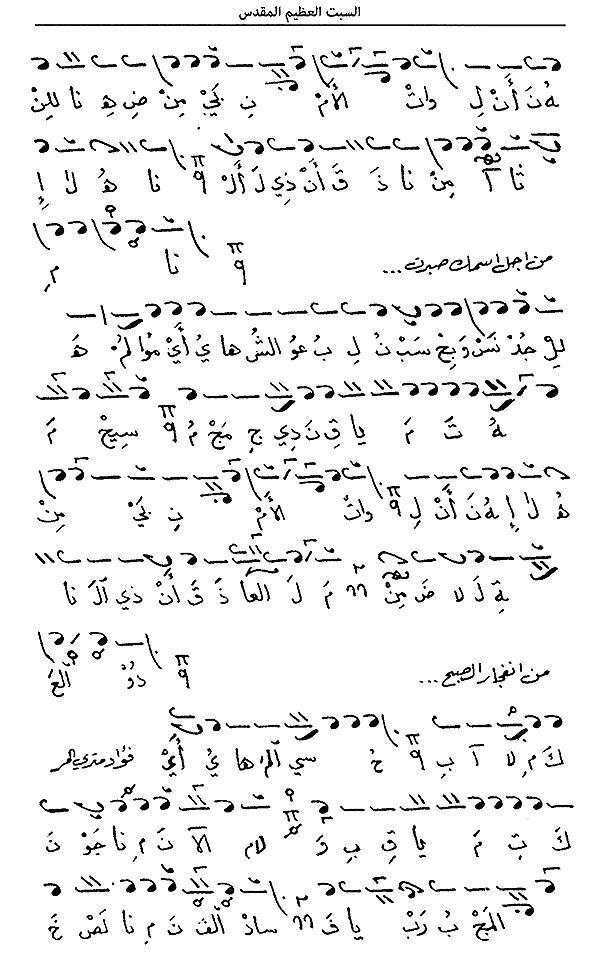 السبت العظيم المقدس
هُنَ أَنْ لِ واتْ الأَمْ نِ بَيْ مِنْ ضِ هِ نا لِلنْ
نا آ مِنْ نا ذَ قَ أَنْ ذِي لَ أَلْ نا هُ لا إِ
من اجل اسمك صبرت... نا مِ
لِلْ جُدْ نَسْ وَ بِحْ سَبْ نُ لِ بُ عو الشُ ها يُ أَيْ مُوا لُمْ هَ
هُ تَ مَ يا قِ نَ دِي جِ مَجْ مُ سِيحْ مَ
هُ لا إِ هُ نَ أَنْ لِ واتْ الأَمْ نِ بَيْ مِنْ
ةِ لَ لا ضَ مِنْ مَ لَ العا ذَ قَ أَنْ ذي آلَ نا
من انفجار الصبح... دُوْ الْعَ
كَ مِ لا آ بِ حُ سي ها يُ أَيْ فؤاد متري المر
كَ تِ مَ يا قِ بِ وَ لام الآ نَ مِ نا جَوْ نَ
المَجْ بُ رَبْ يا فَ سادْ الْفَ نَ مِ نا لَصْ خَ